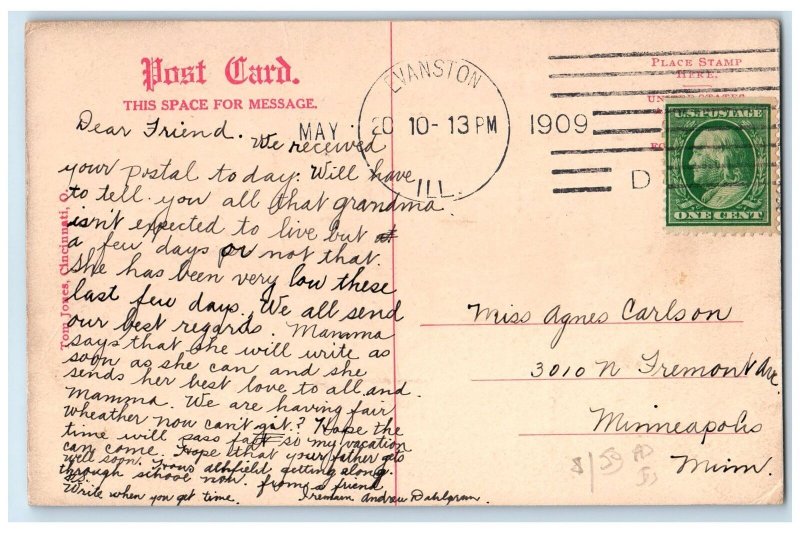 Post Card.
THIS SPACE FOR MESSAGE.
PLACE STAMP
HERE.
UNITED STATES
EVANSTON
MAY 20 10-13 PM 1909
ILL.
D
U.S. POSTAGE
ONE CENT
Tom Jones, Cincinnati, O.
Dear Friend. We received
your postal today. Will have
to tell you all that grandma
isn't expected to live but at
a few days or not that.
She has been very low these
last few days. We all send
our best regards. Mamma
says that she will write as
soon as she can and she
sends her best love to all and
Mamma. We are having fair
wheather now can't git? Hope the
time will pass fast so my vacation
can come. Hope that your father gets
well soon. getting along
through school now. from a friend
Write when you get time. I remain Andrew Dahlgren.
Miss Agnes Carlson
3010 N Fremont Ave
Minneapolis
Minn.
8/59